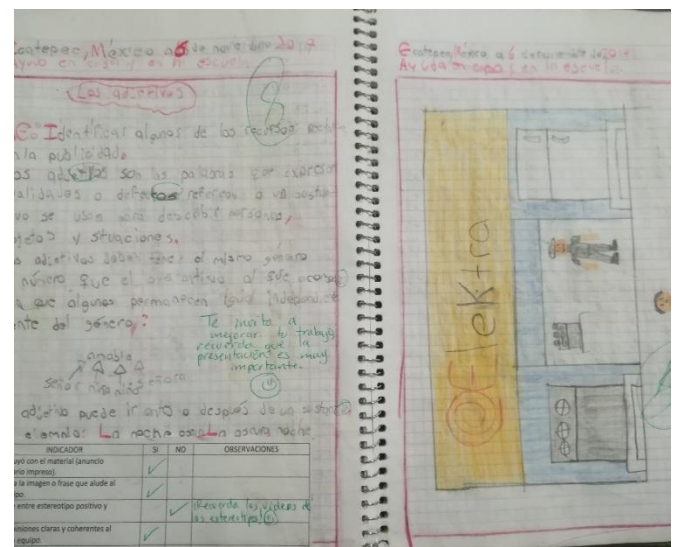 Coatepec, México a 6 de noviembre 2017
Ayudo en casa y en mi escuela.
8
Los adjetivos
E: Identifical algunos de los recursos
n la publicidad.
os adjetivos son las palabras que expresan
alidaves o defectos referidos a un sustan
vo se usan para describir personas,
jetos y situaciones.
s adjetivos deben tener el mismo género
número, que el sustantivo al que acompaña
que algunos permanecen igual independie
nte del género?
Te invito a
mejorar tu trabajo,
recuerda que la
presentación es muy
importante.
amable
señor niña niño señora
adjetivo puede ir antes o después de un sustantivo
ejemplo: La noche oscura La oscura noche.
INDICADOR SI NO OBSERVACIONES
uyó con el material (anuncio
ario impreso).
a la imagen o frase que alude al
ipo.
e entre estereotipo positivo y
¡Recuerda los videos de
los estereotipos!
iniones claras y coherentes al
equipo.
Coatepec, México a 6 de noviembre de 2017
Ayuda en casa y en la escuela.
Elektra